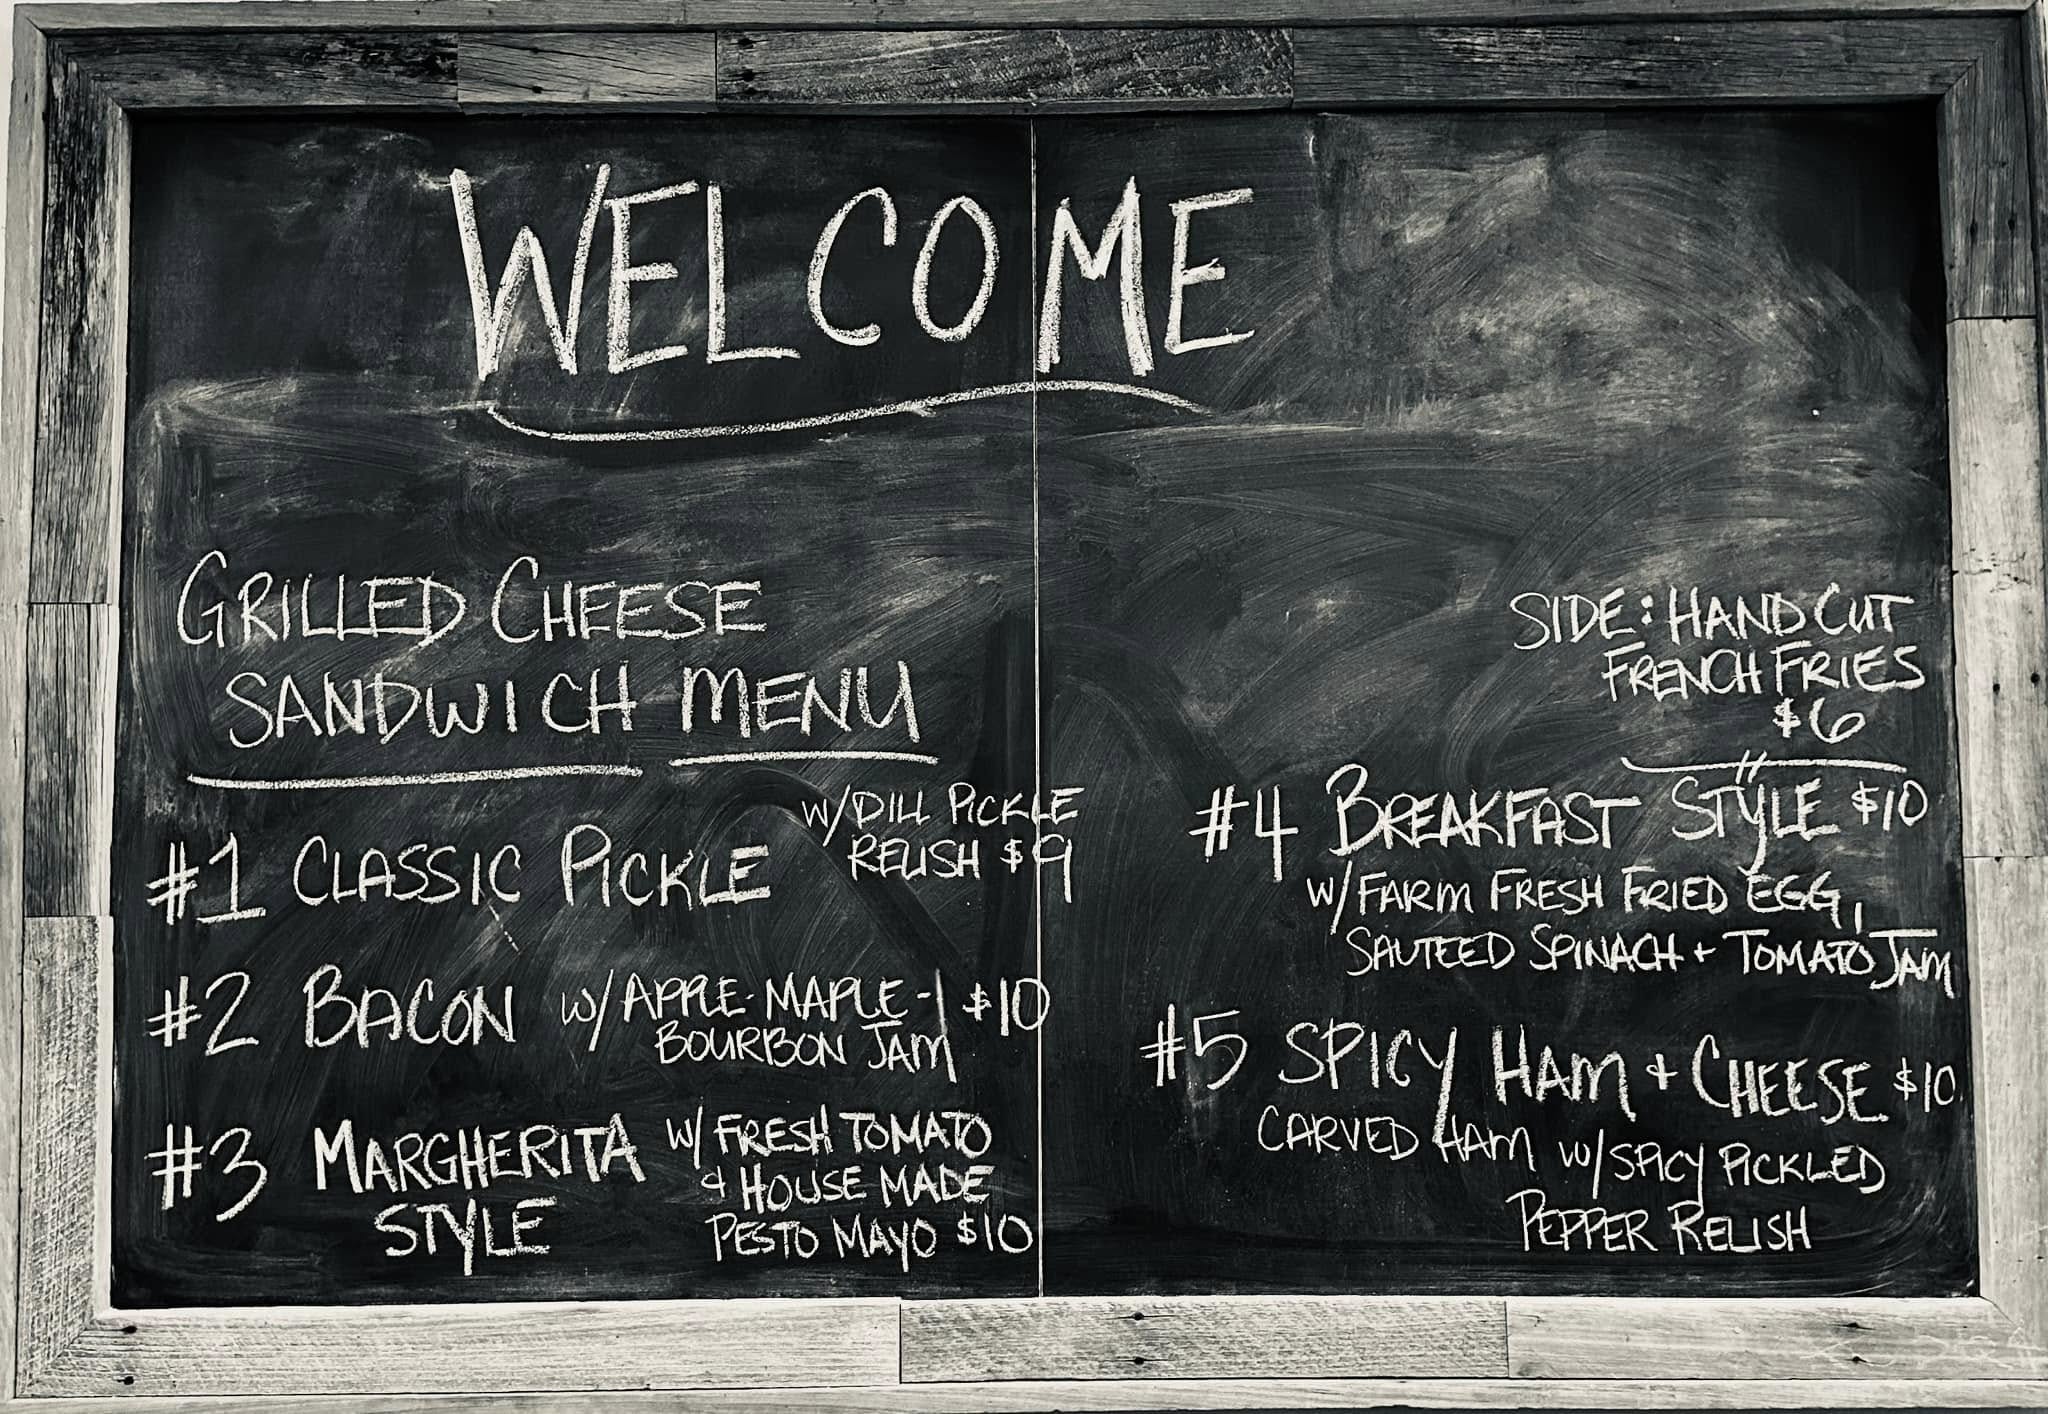 WELCOME
GRILLED CHEESE
SANDWICH MENU
#1 CLASSIC PICKLE
w/DILL PICKLE
RELISH $9
#2 BACON w/APPLE-MAPLE- $10
BOURBON JAM
#3 MARGHERITA
STYLE
w/ FRESH TOMATO
& HOUSE MADE
PESTO MAYO $10
SIDE: HAND CUT
FRENCH FRIES
$6
#4 BREAKFAST STYLE $10
w/FARM FRESH FRIED EGG,
SAUTEED SPINACH + TOMATO JAM
#5 SPICY HAM + CHEESE $10
CARVED HAM w/SPICY PICKLED
PEPPER RELISH